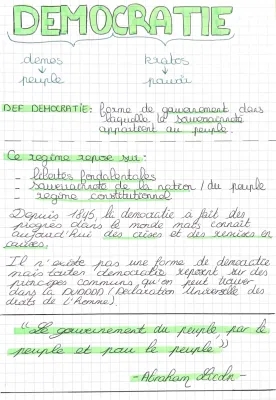 DEMOCRATIE
demos kratos
peuple pouvoir
DEF DEMOCRATIE: forme de gouvernement dans
laquelle la souveraineté
appartient au peuple.
Ce régime repose sur:
- libertés fondamentales
- souveraineté de la nation / du peuple
- régime constitutionnel
Depuis 1945, la démocratie a fait des
progrès dans le monde mais connait
aujourd'hui des crises et des remises en
causes.
Il n'existe pas une forme de démocratie
mais toutes démocratie reposent sur des
principes communs qu'on peut trouver
dans la DUDDH (Déclaration Universelle des
droits de l'homme).
"Le gouvernement du peuple par le
peuple et pour le peuple"
- Abraham Lincoln -